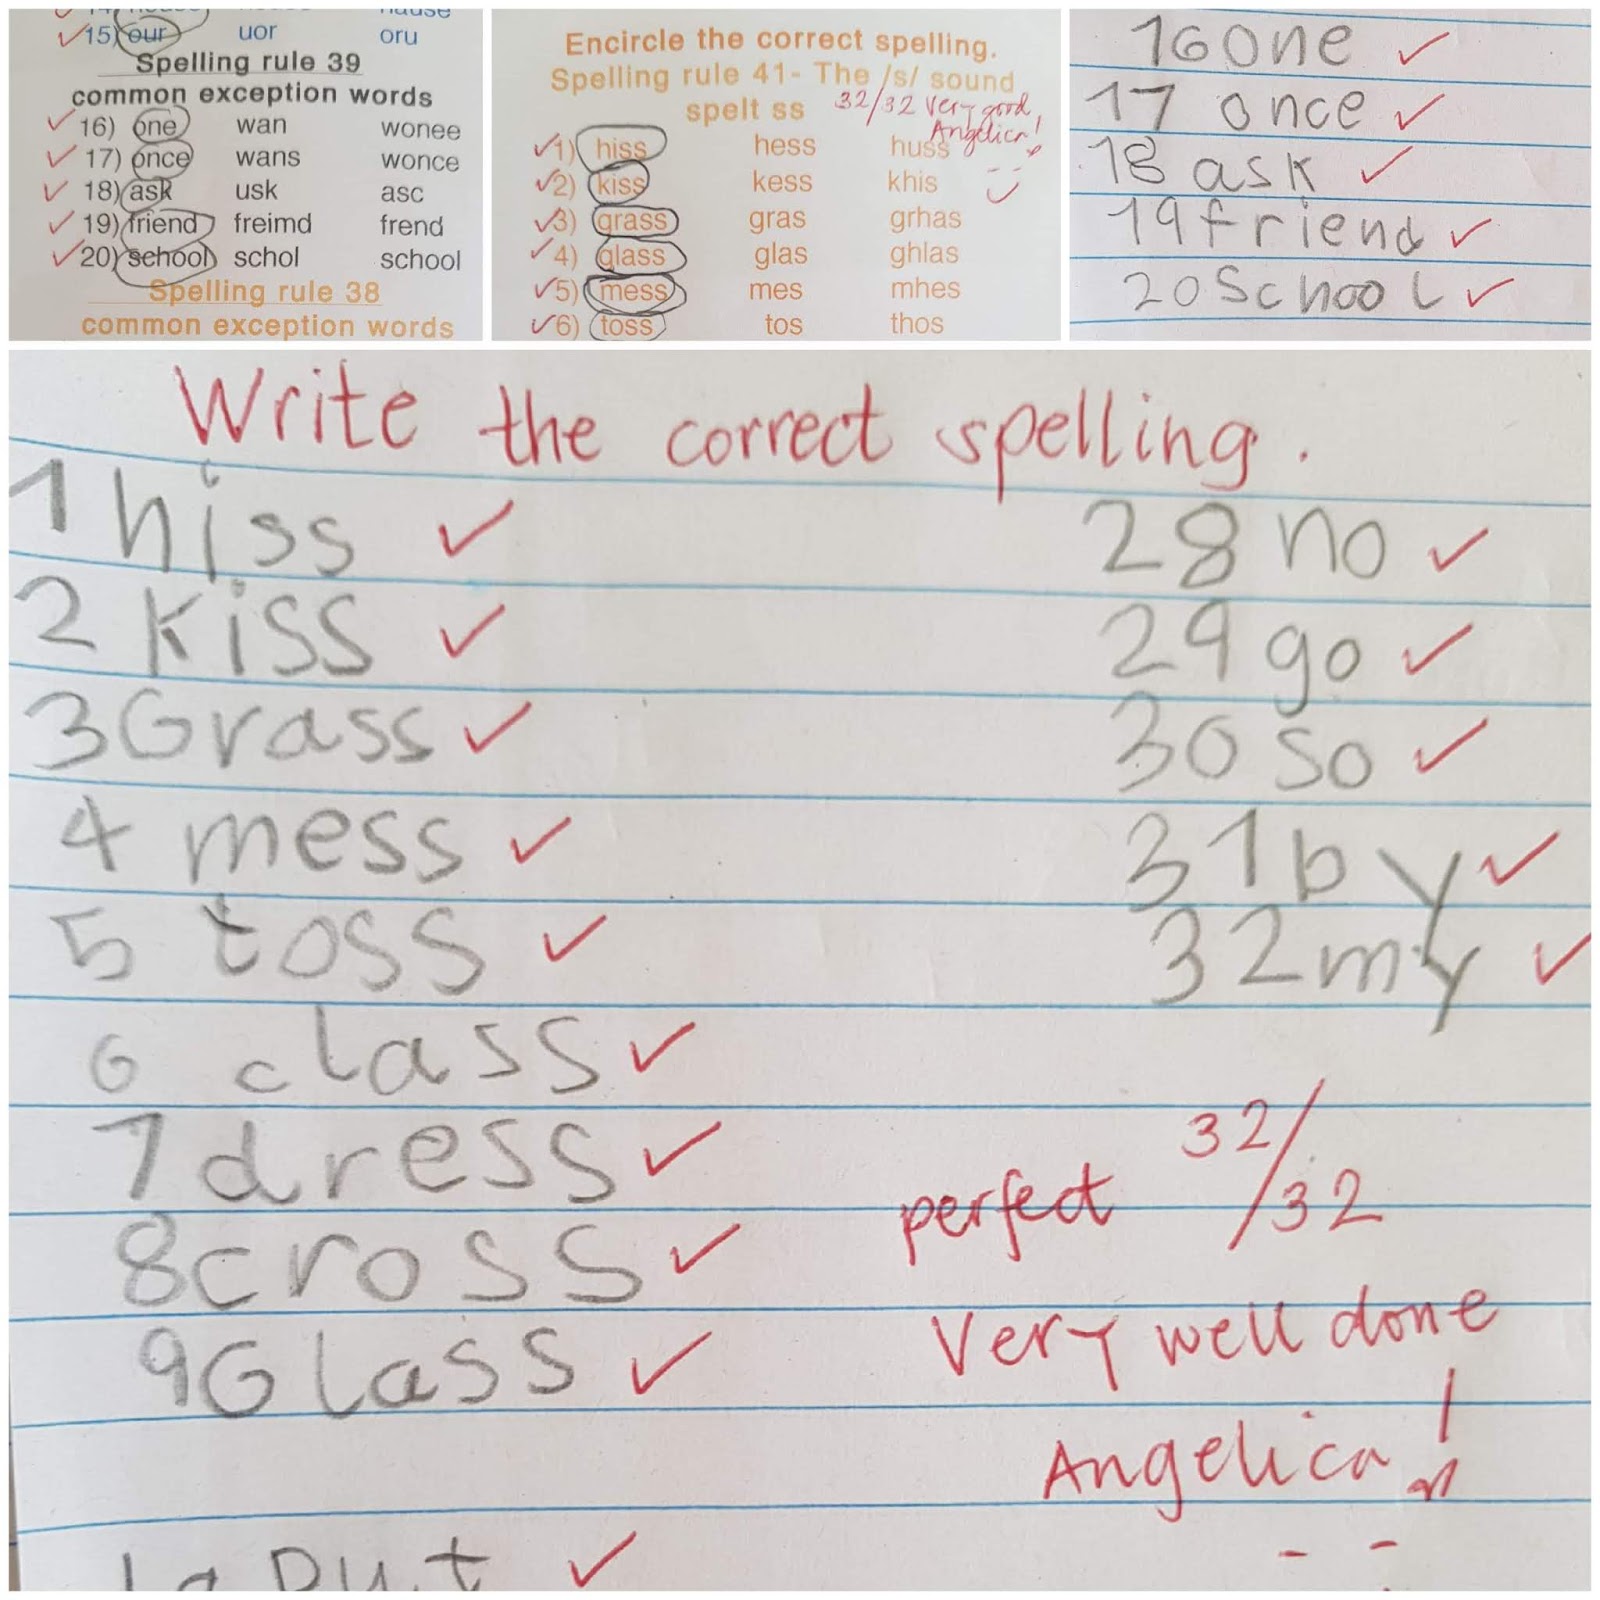 14) house hause
15) our uor oru
Spelling rule 39
common exception words
16) one wan wonee
17) once wans wonce
18) ask usk asc
19) friend freimd frend
20) school schol school
Spelling rule 38
common exception words
Encircle the correct spelling.
Spelling rule 41- The /s/ sound
spelt ss 32/32 Very good,
Angelica!
1) hiss hess huss
2) kiss kess khis
3) grass gras grhas
4) glass glas ghlas
5) mess mes mhes
6) toss tos thos
16 one
17 once
18 ask
19 friend
20 School
Write the correct spelling.
1 hiss
2 kiss
3 Grass
4 mess
5 toss
6 class
7 dress
8 cross
9 Glass
put
28 no
29 go
30 so
31 by
32 my
perfect 32/32
Very well done
Angelica!